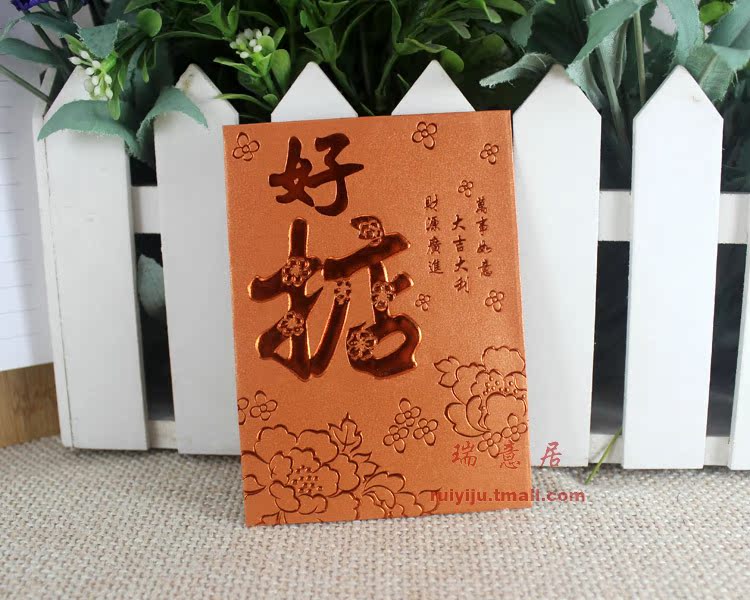 好
掂
萬事如意
大吉大利
財源廣進
瑞意居
ruiyiju.tmall.com